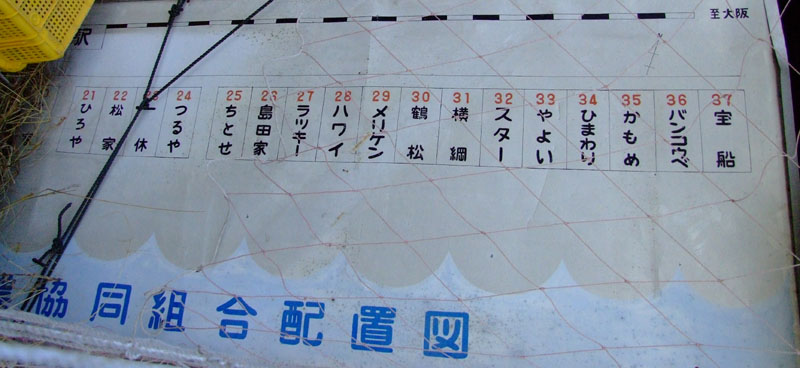 至大阪
駅
21 ひろや
22 松家
23 休
24 つるや
25 ちとせ
26 島田家
27 ラッキー
28 ハワイ
29 メリケン
30 鶴松
31 横綱
32 スター
33 やよい
34 ひまわり
35 かもめ
36 バンコウベ
37 宝船
協同組合配置図